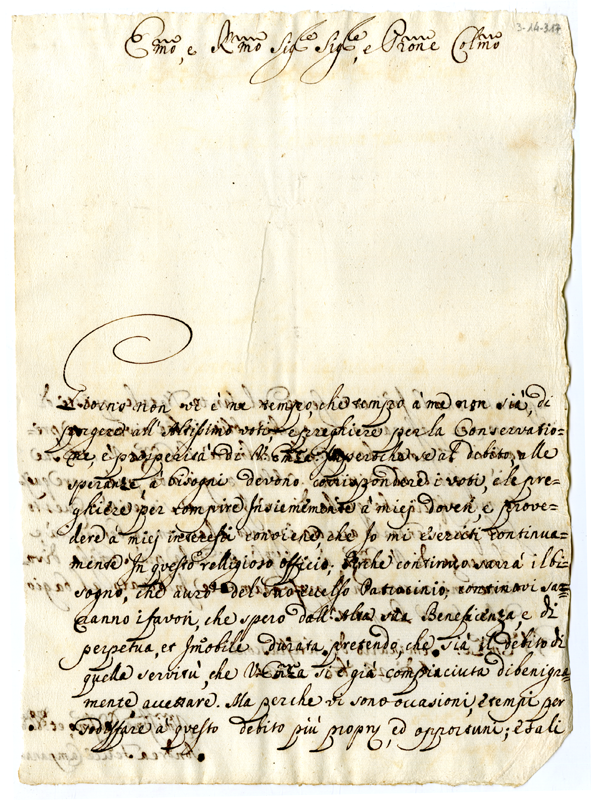 3-14-317
Emo, e Rmo Sigre Sigre, e Prone Colmo
Giorno non vi è ne tempo, che tempo à me non sia, di
porgere all' Altissimo voti, e preghiere per la Conservatio=
ne, e prosperità di V. Emza. Imperoche se al debito, alle
speranze, à bisogni devono corrispondere i voti, e le pre=
ghiere, per compire insiememente à miej doveri, e prove=
dere à miej interessi conviene, che Io mi eserciti continua=
mente in questo religioso officio; Perche continuo sarrà il bi=
sogno, che aurò del suo Patrocinio, continovi sa=
ranno i favori, che spero dall' alta sua Beneficenza e di
perpetua, et Imobile durata pretendo, che sia il debito di
quella servitù, che V. Emza si è già compiaciuta di benigna
mente accettare. Ma perche vi sono occasioni, e tempi per
sodisfare à questo debito più proprij, ed opportuni; e tali